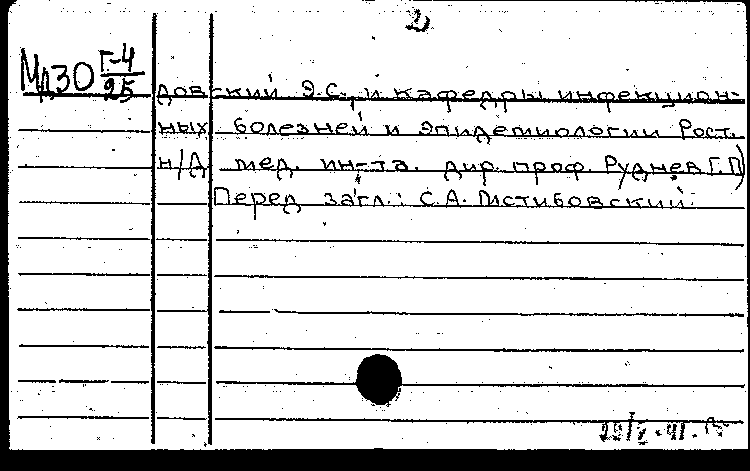 2)
Мд30 Г-4/25
довский Э.С., и кафедры инфекцион-
ных болезней и эпидемиологии Рост.
н/Д мед. ин-та. дир. проф. Руднев Г.П)
Перед загл.: С.А. Пистибовский.